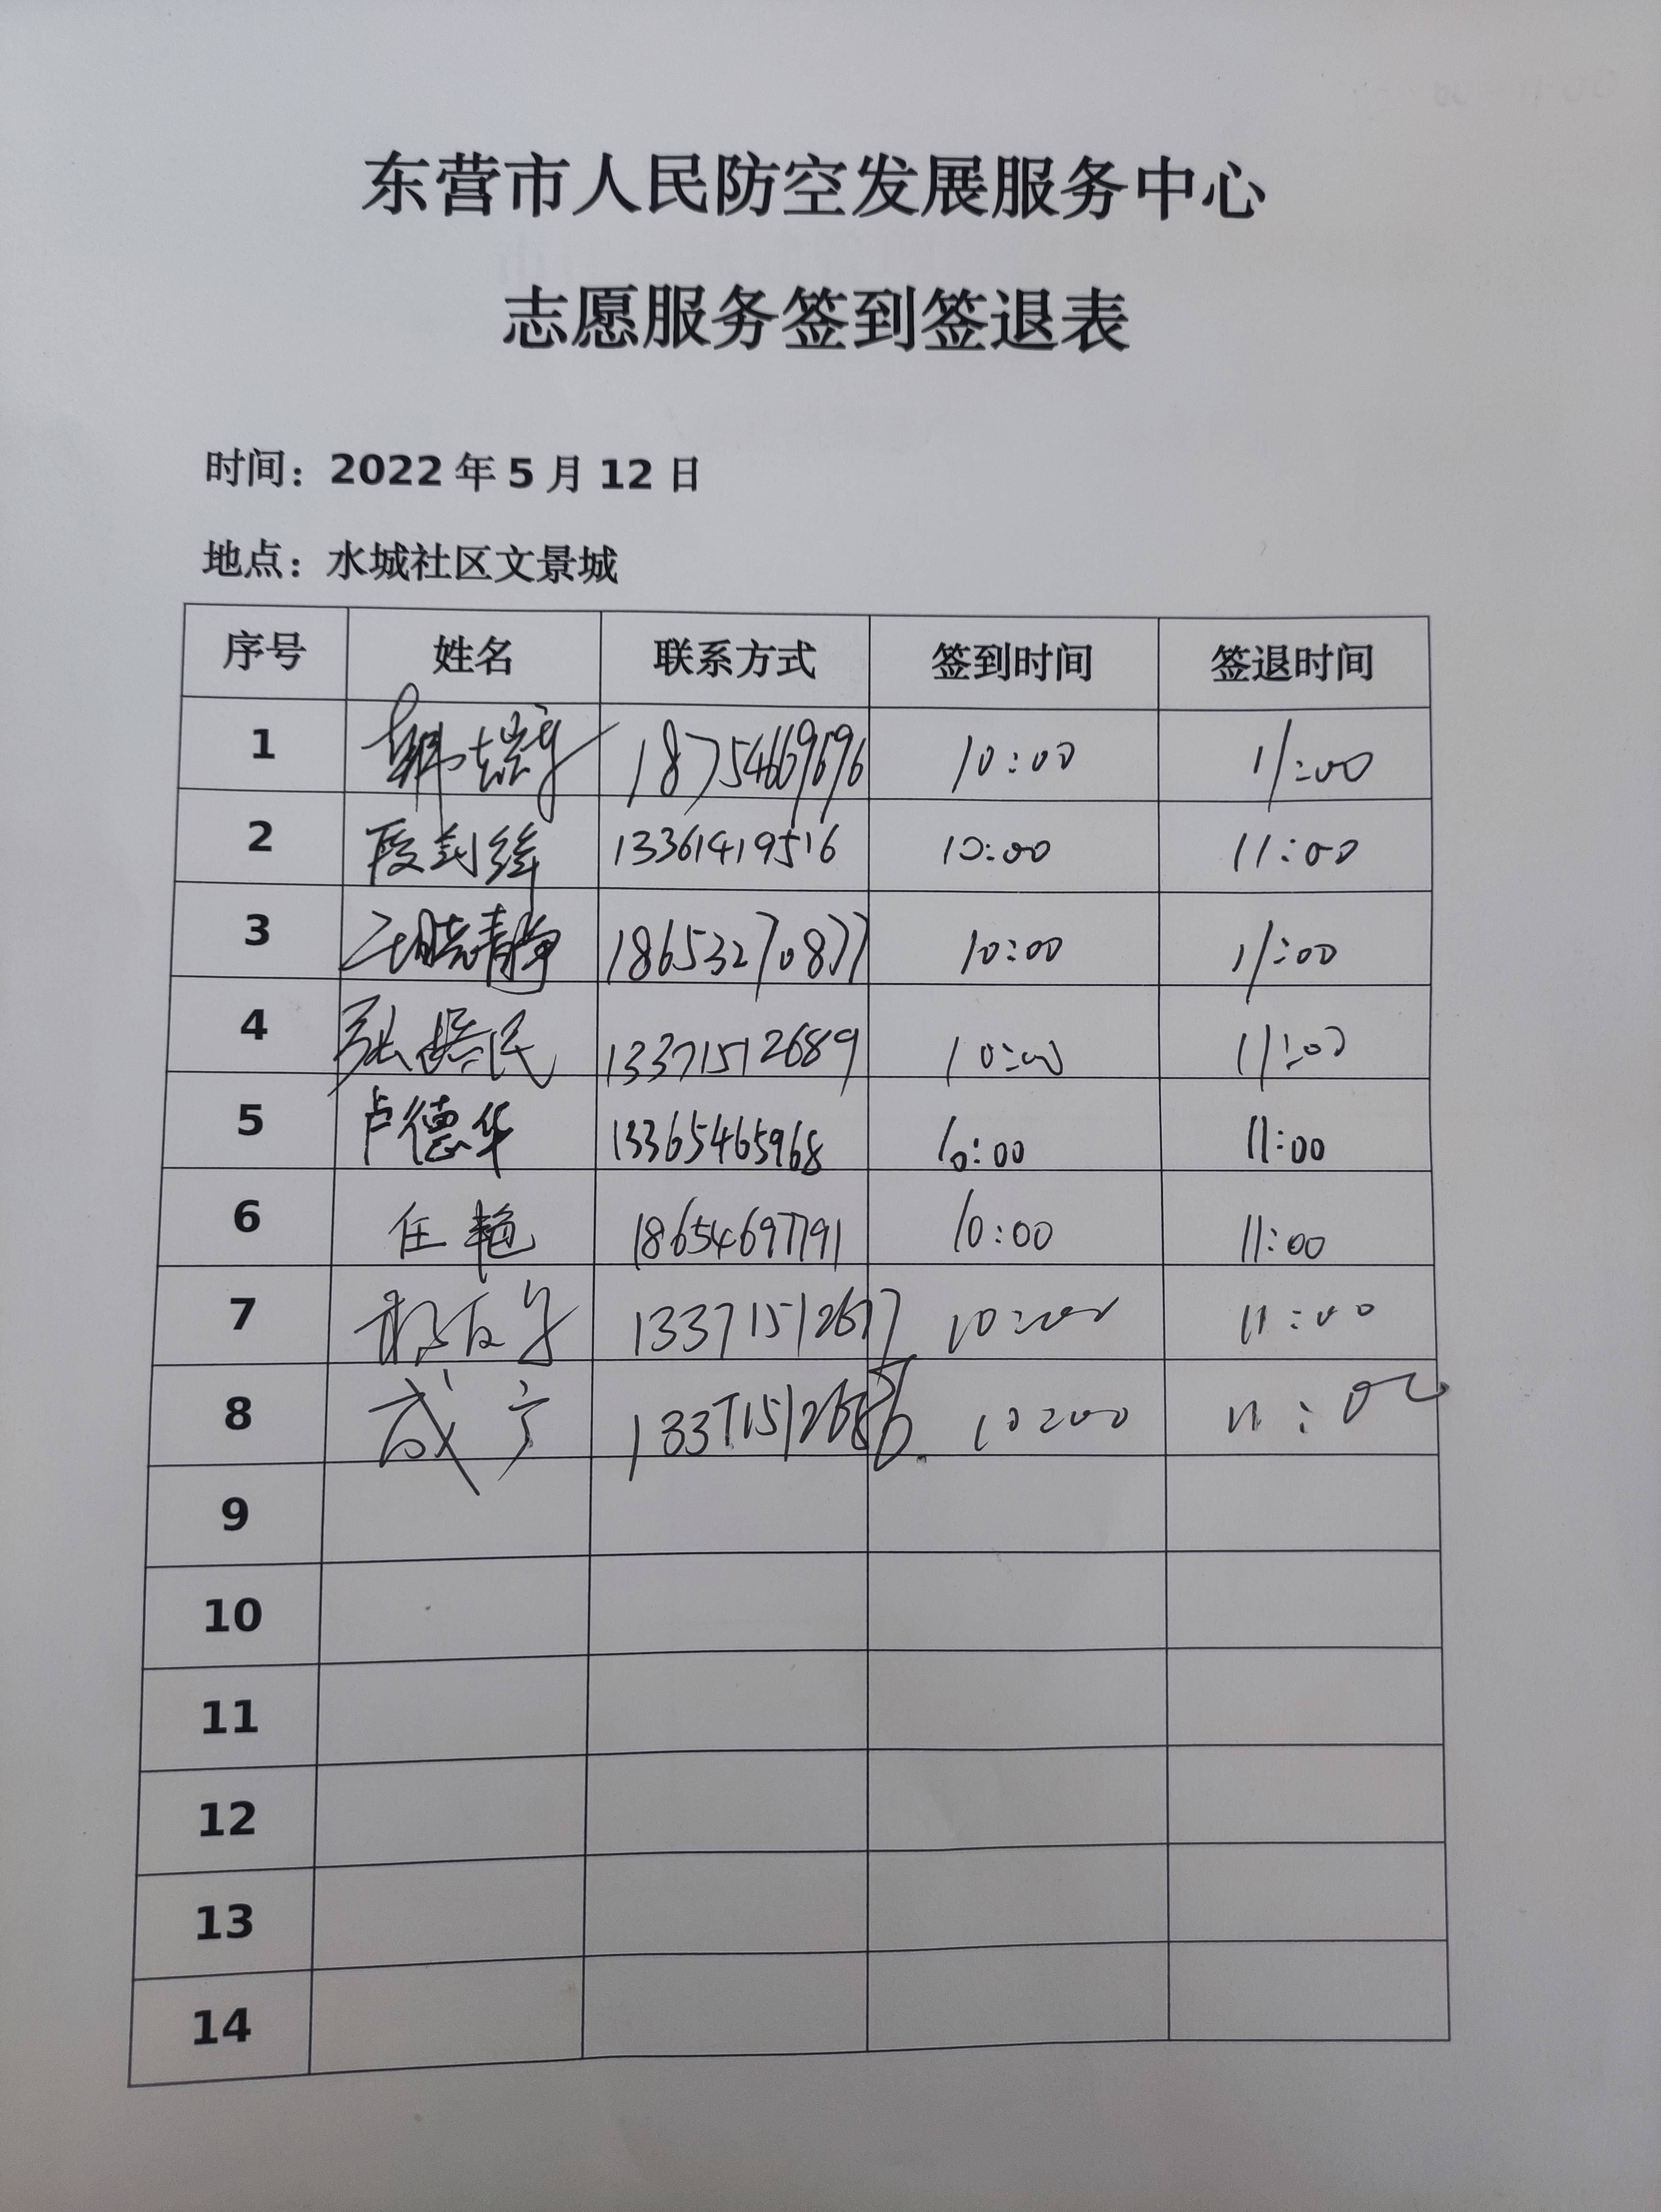 东营市人民防空发展服务中心
志愿服务签到签退表
时间：2022 年 5 月 12 日
地点：水城社区文景城
序号 姓名 联系方式 签到时间 签退时间
1 韩 18754669696 10:00 11:00
2 段 13361419516 10:00 11:00
3 王晓静 18653270877 10:00 11:00
4 张 民 13371512689 10:00 11:00
5 卢德华 13365465968 10:00 11:00
6 任艳 18654697791 10:00 11:00
7 13371512677 10:00 11:00
8 10:00 11:00
9
10
11
12
13
14